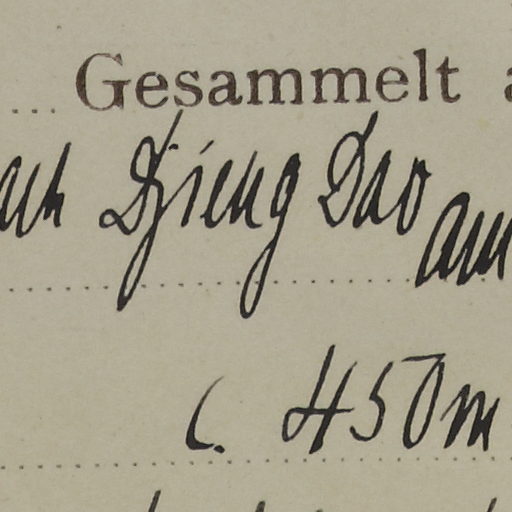 Gesammelt a
Djieng Dao am
c. 450 m